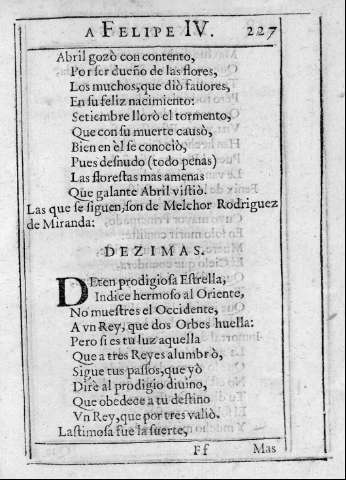 A FELIPE IV. 227
Abril gozò con contento,
Por ser dueño de las flores,
Los muchos, que diò fauores,
En su feliz nacimiento:
Setiembre llorò el tormento,
Que con su muerte causò,
Bien en èl se conociò,
Pues desnudo (todo penas)
Las florestas mas amenas
Que galante Abril vistiò.
Las que se siguen, son de Melchor Rodriguez
de Miranda:
DEZIMAS.
DEten prodigiosa Estrella,
Indice hermoso al Oriente,
No muestres el Occidente,
A vn Rey, que dos Orbes huella:
Pero si es tu luz aquella
Que a tres Reyes alumbrò,
Sigue tus passos, que yò
Dirè al prodigio diuino,
Que obedece a tu destino
Vn Rey, que por tres valiò.
Lastimosa fue la suerte,
Ff Mas